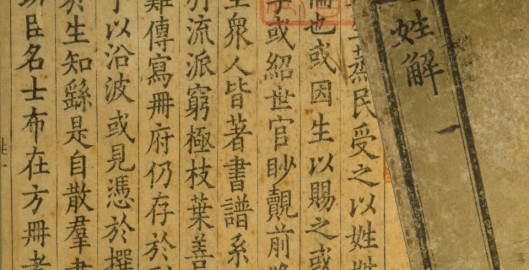 姓解一
生蒸民受之以姓
也或因生以賜之或
或紹世官眇覿前
衆人皆著書譜系
流派窮極枝葉善
難傳寫冊府仍存於
以沿波或見憑於撰
於生知繇是自散羣書
臣名士布在方冊者